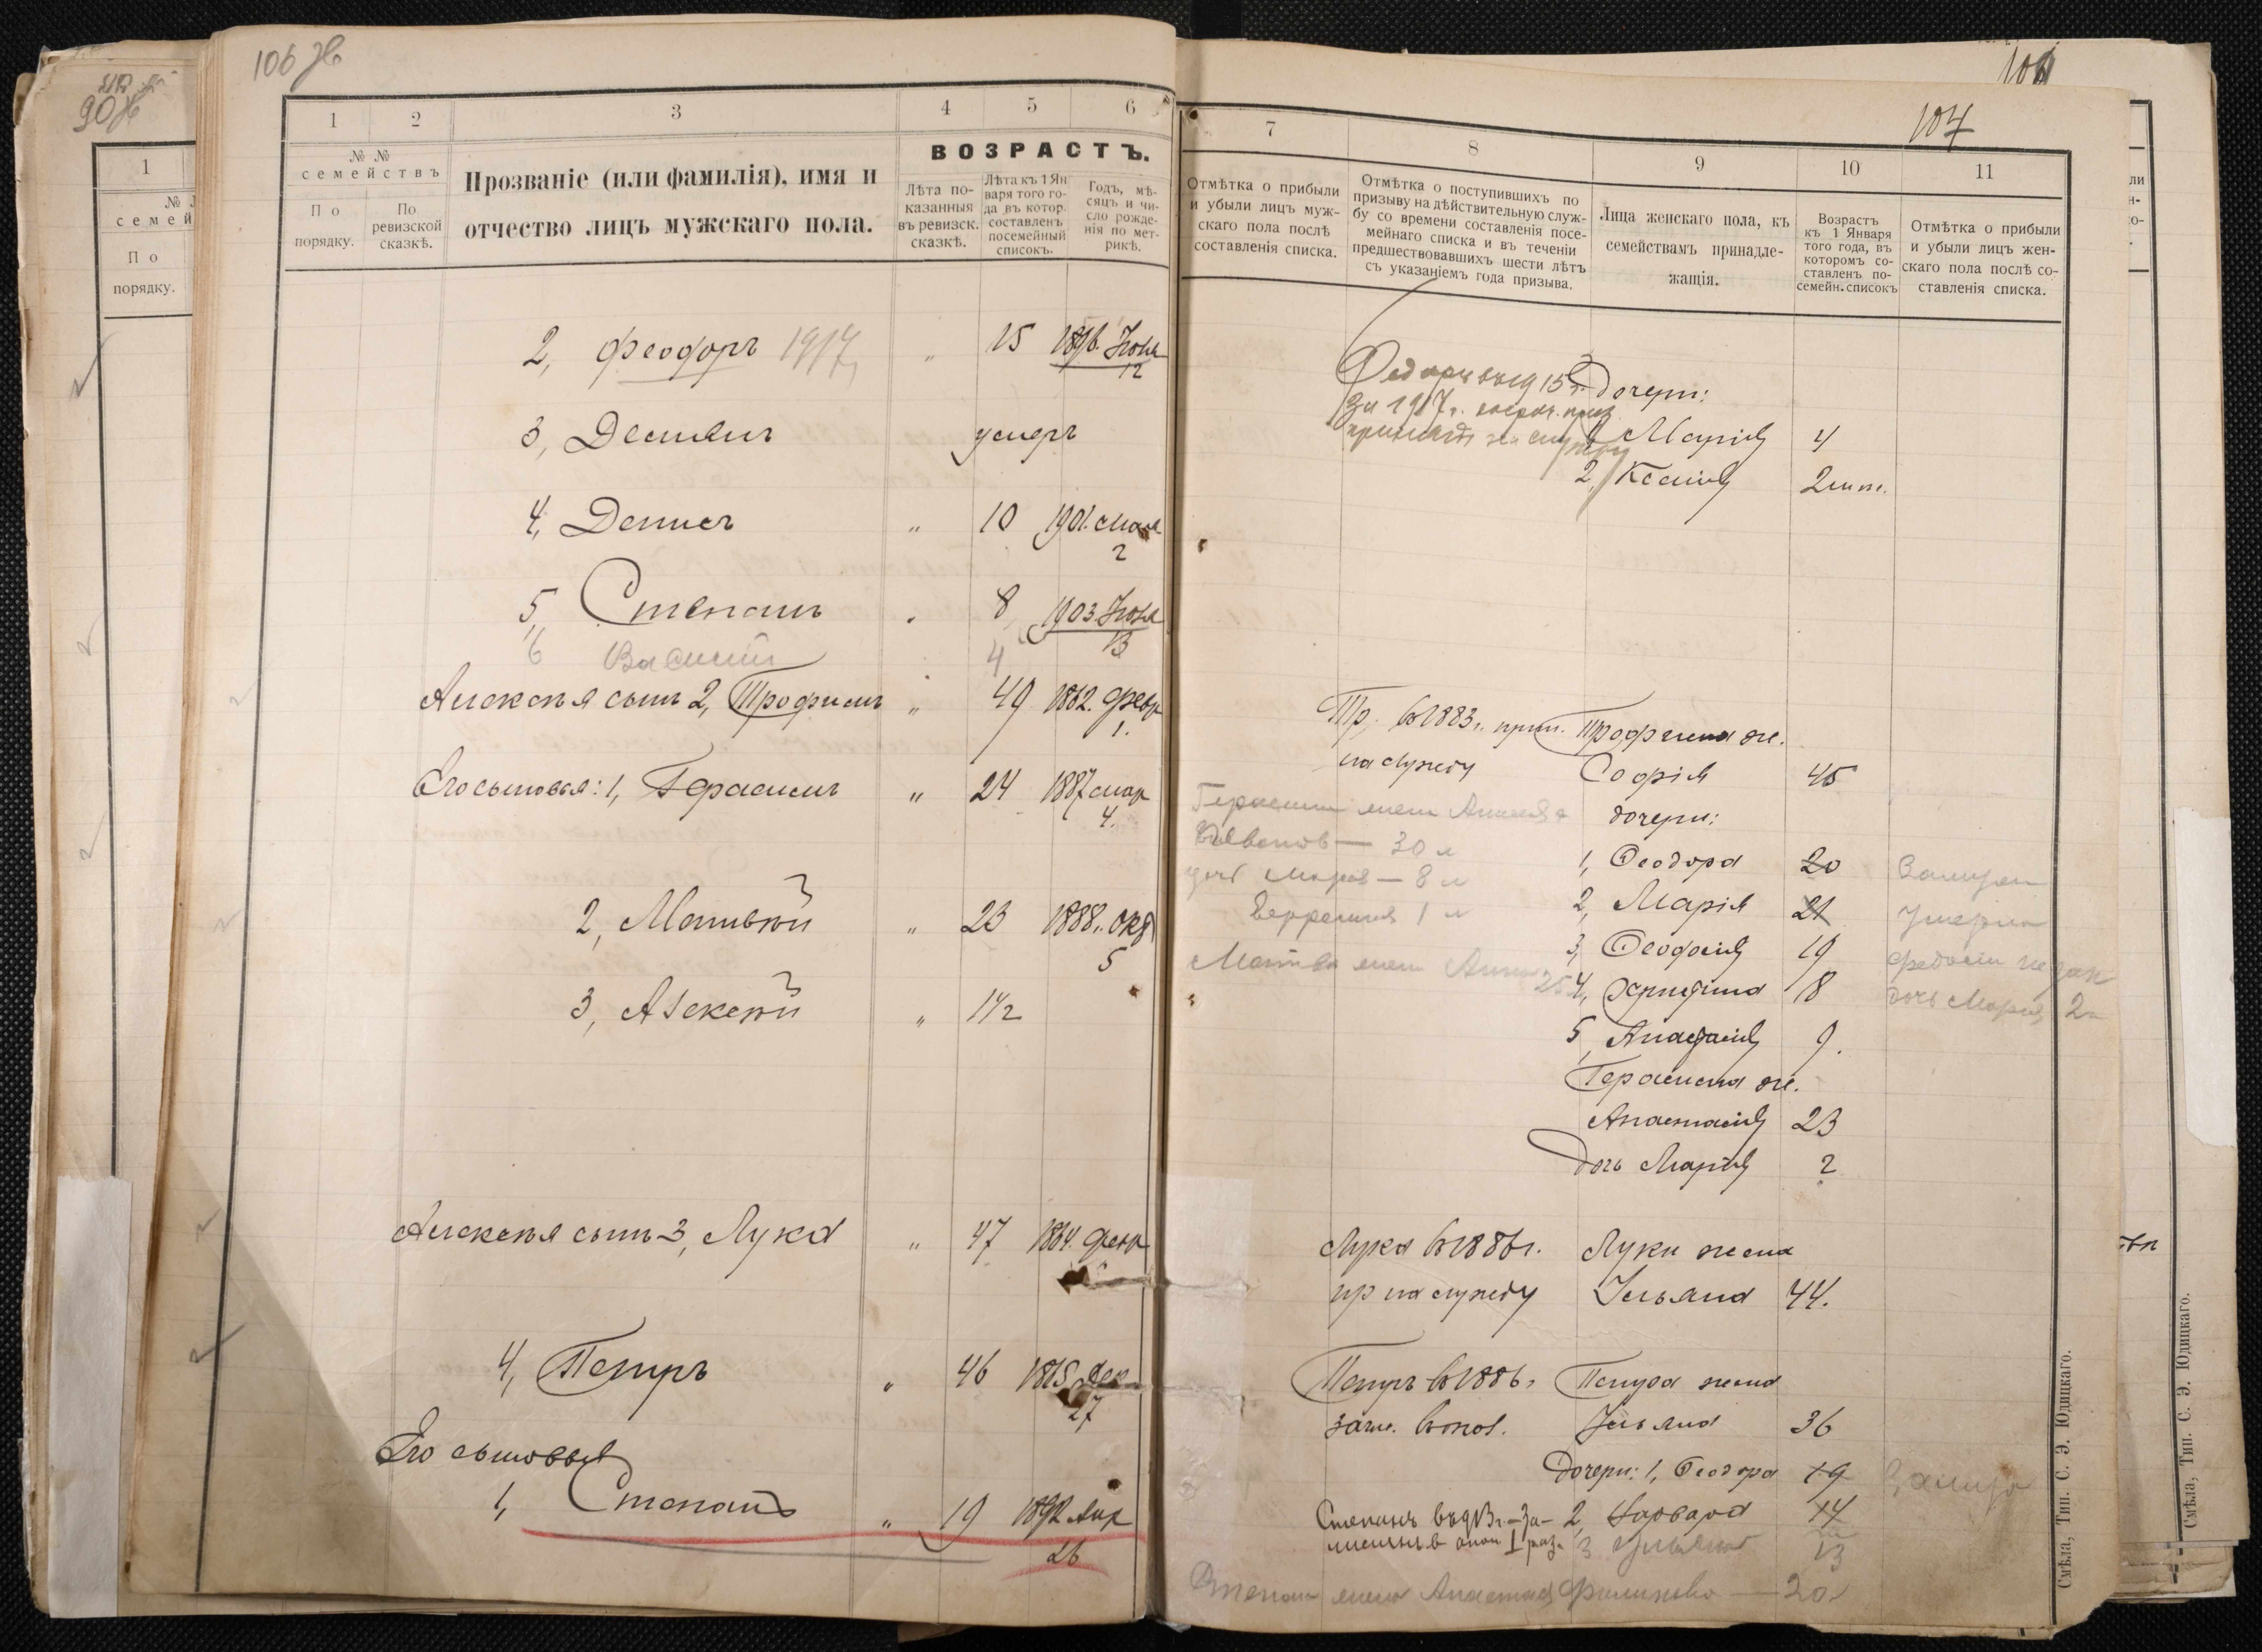 106 об
90 об
1
семей
По
порядку.
1 2 3 4 5 6
№ №
семействъ
По
порядку.
По
ревизской
сказкѣ.
Прозваніе (или фамилія), имя и
отчество лицъ мужскаго пола.
ВОЗРАСТЪ.
Лѣта по-
казанныя
въ ревизск.
сказкѣ.
Лѣта къ 1 Ян
варя того го-
да въ котор.
составленъ
посемейный
списокъ.
Годъ, мѣ-
сяцъ и чи-
сло рожде-
нія по мет-
рикѣ.
2, Феодоръ 1917 " 15 1896. Іюня
12
3, Демьянъ умеръ
4, Денисъ " 10 1901. мая
2
5, Степанъ " 8 1903. Іюля
13
6 Василій 4
Алексѣя сынъ 2, Трофимъ " 49 1862. Февр
1.
Его сыновья: 1, Герасимъ " 24 1887 мар
4.
2, Матвѣй " 23 1888. окт
5
3, Алексѣй " 1½
Алексѣя сынъ 3, Лука " 47 1864. февр
4, Петръ " 46 1865 Дек
27
Его сыновья
1, Степанъ " 19 1892 Апр
26
106
107
7 8 9 10 11
Отмѣтка о прибыли
и убыли лицъ муж-
скаго пола послѣ
составленія списка.
Отмѣтка о поступившихъ по
призыву на дѣйствительную служ-
бу со времени составленія посе-
мейнаго списка и въ теченіи
предшествовавшихъ шести лѣтъ
съ указаніемъ года призыва.
Лица женскаго пола, къ
семействамъ принадле-
жащія.
Возрастъ
къ 1 Января
того года, въ
которомъ со-
ставленъ по-
семейн. списокъ
Отмѣтка о прибыли
и убыли лицъ жен-
скаго пола послѣ со-
ставленія списка.
Федоръ 15 г. дочери:
за 1917 г.
принятъ на службу 1 Марія 4
2, Ксенія 2 м.
Тр. в 1883 г. прин. Трофима же.
на службу Софія 45
Герасима жена
30 л дочери:
дочь Марія — 8 л 1, Феодора 20 Замужем
1 л 2, Марія 21 Умерла
3, Феодосія 19
Матвея жена Анна 25 4, Христина 8 дочь Мария 2
5, Анастасія 9.
Герасима же.
Анастасія 23
дочь Марія 2
Лука в 1886 г. Луки жена
пр на службу Ульяна 44.
Петръ в 1886 г. Петра жена
зачис. в опол. Ульяна 36
Дочери: 1, Феодора 19 Замужем
Степанъ въ 913 г. — за- 2, Варвара 14
численъ в опол I раз. 3 Ульяна 13
Степана жена Анастасия — 20
Смѣла, Тип. С. Э. Юдицкаго.
Смѣла, Тип. С. Э. Юдицкаго.